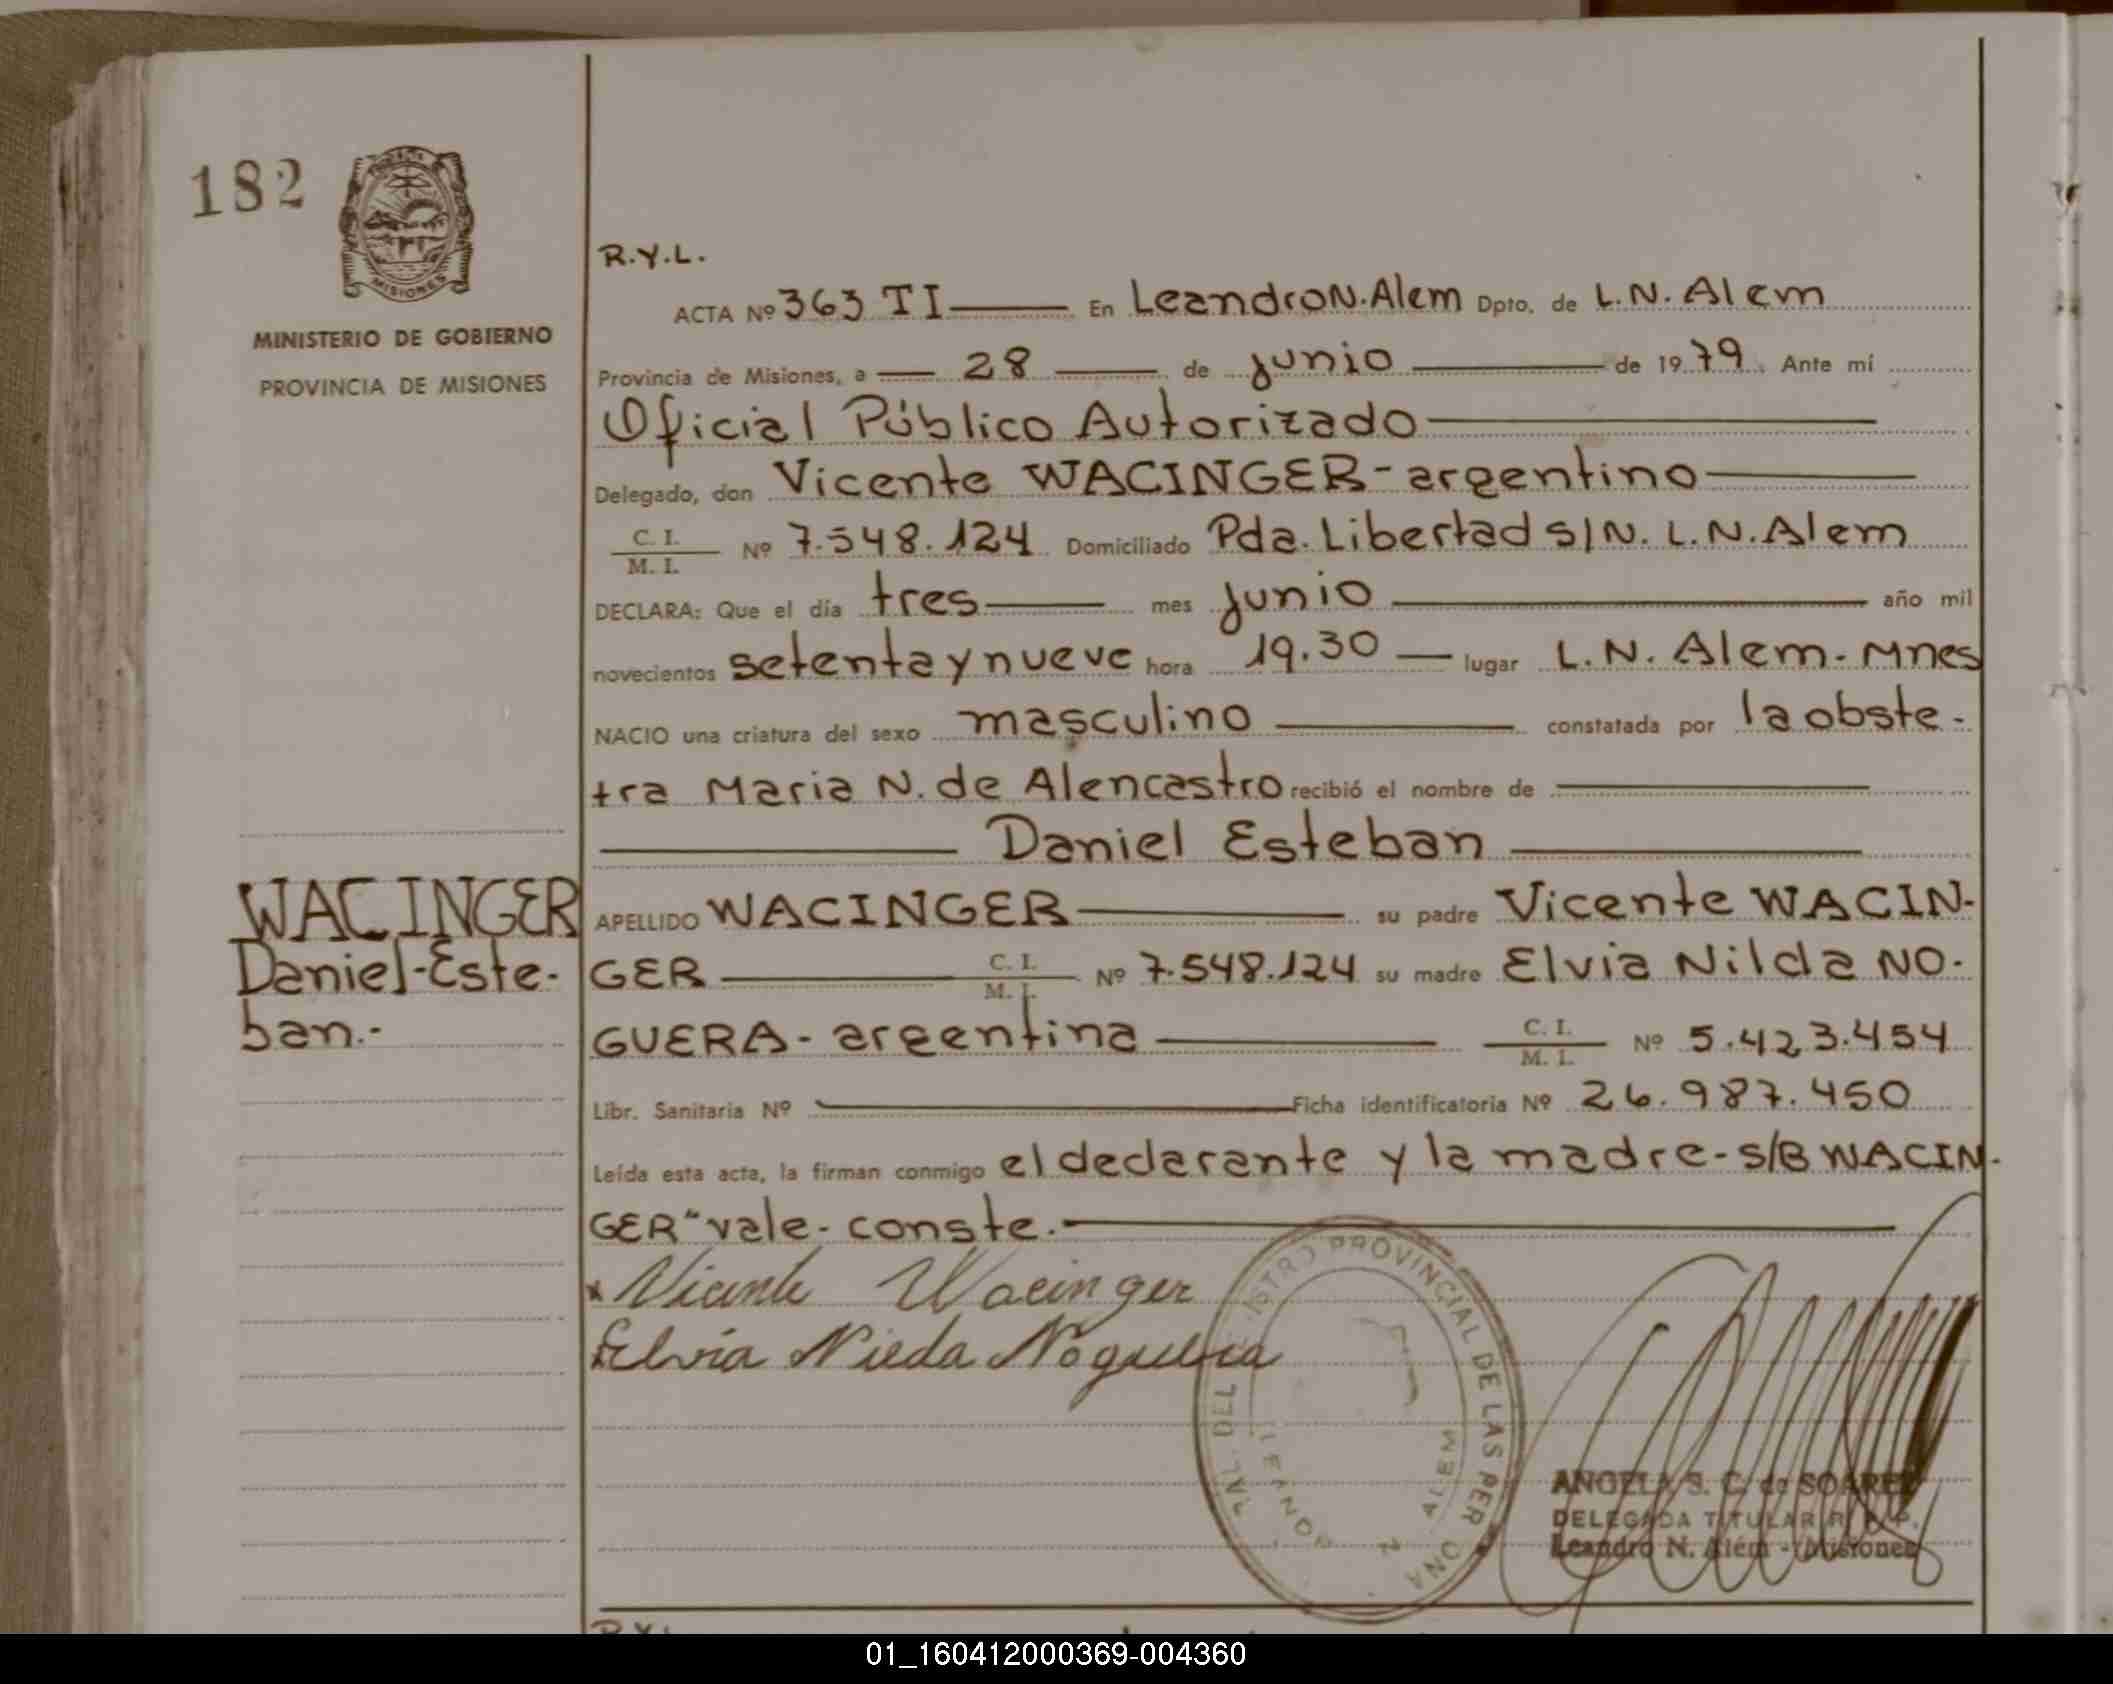 182
MISIONES
MINISTERIO DE GOBIERNO
PROVINCIA DE MISIONES
WACINGER
Daniel-Este-
ban.-
R.Y.L.
ACTA Nº 363 TI En Leandro N. Alem Dpto. de L.N. Alem
Provincia de Misiones, a 28 de junio de 1979. Ante mí
Oficial Público Autorizado
Delegado, don Vicente WACINGER - argentino
C. I.
M. I. Nº 7.548.124 Domiciliado Pda. Libertad S/N. L.N. Alem
DECLARA: Que el día tres mes junio año mil
novecientos setenta y nueve hora 19.30 lugar L.N. Alem - Mnes
NACIO una criatura del sexo masculino constatada por la obste-
tra Maria N. de Alencastro recibió el nombre de
Daniel Esteban
APELLIDO WACINGER su padre Vicente WACIN-
GER C. I. M. I. Nº 7.548.124 su madre Elvia Nilda NO-
GUERA - argentina C. I. M. I. Nº 5.423.454
Libr. Sanitaria Nº Ficha identificatoria Nº 26.987.450
Leída esta acta, la firman conmigo el declarante y la madre - S/B WACIN-
GER" vale - conste.-
Vicente Wacinger
Elvia Nilda Noguera
PROVINCIAL DE LAS PER
N ALEM
ANGELA S. C. de SOAREZ
DELEGADA TITULAR R. P.
Leandro N. Além - Misiones
01_160412000369-004360